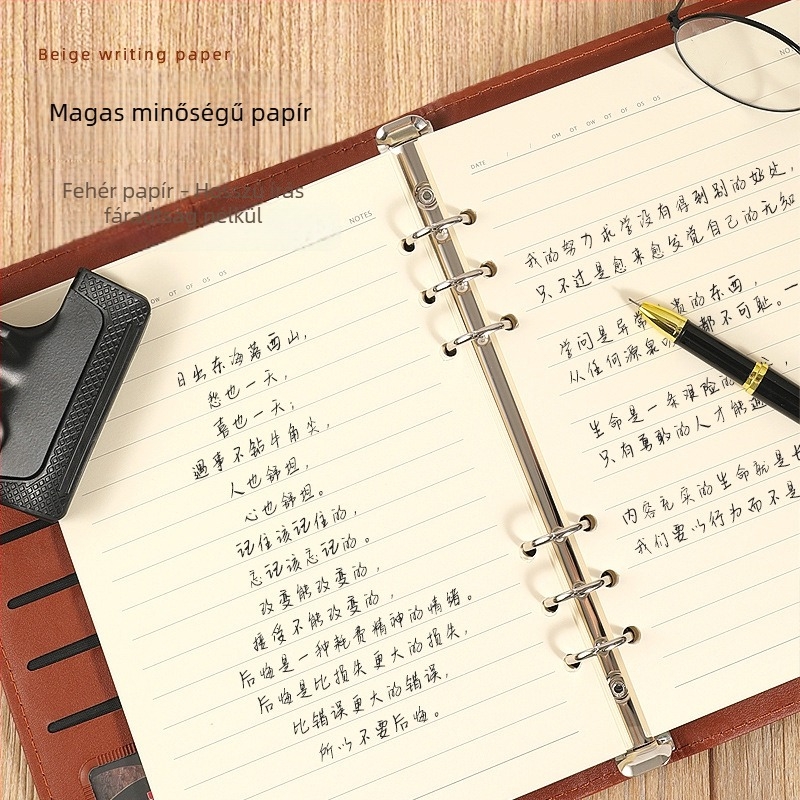 Beige writing paper
Magas minőségű papír
Fehér papír – Hosszú írás
fáradtság nélkül
NOTES
OW OT OF OS OS
日出东海落西山，
愁也一天，
喜也一天；
遇事不钻牛角尖，
人也舒坦，
心也舒坦。
记住该记住的，
忘记该忘记的。
改变能改变的，
接受不能改变的，
后悔是一种耗费精神的情绪。
后悔是比损失更大的损失，
比错误更大的错误，
所以不要后悔。
NO
DATE / / OM OT OW OT OF OS OS
我的努力求学没有得到别的好处，
只不过是愈来愈发觉自己的无知
学问是异常 贵的东西，
从任何源泉 都不可耻。一
生命是一条艰险的
只有勇敢的人才能
内容充实的生命就是
我们要以行为而不是